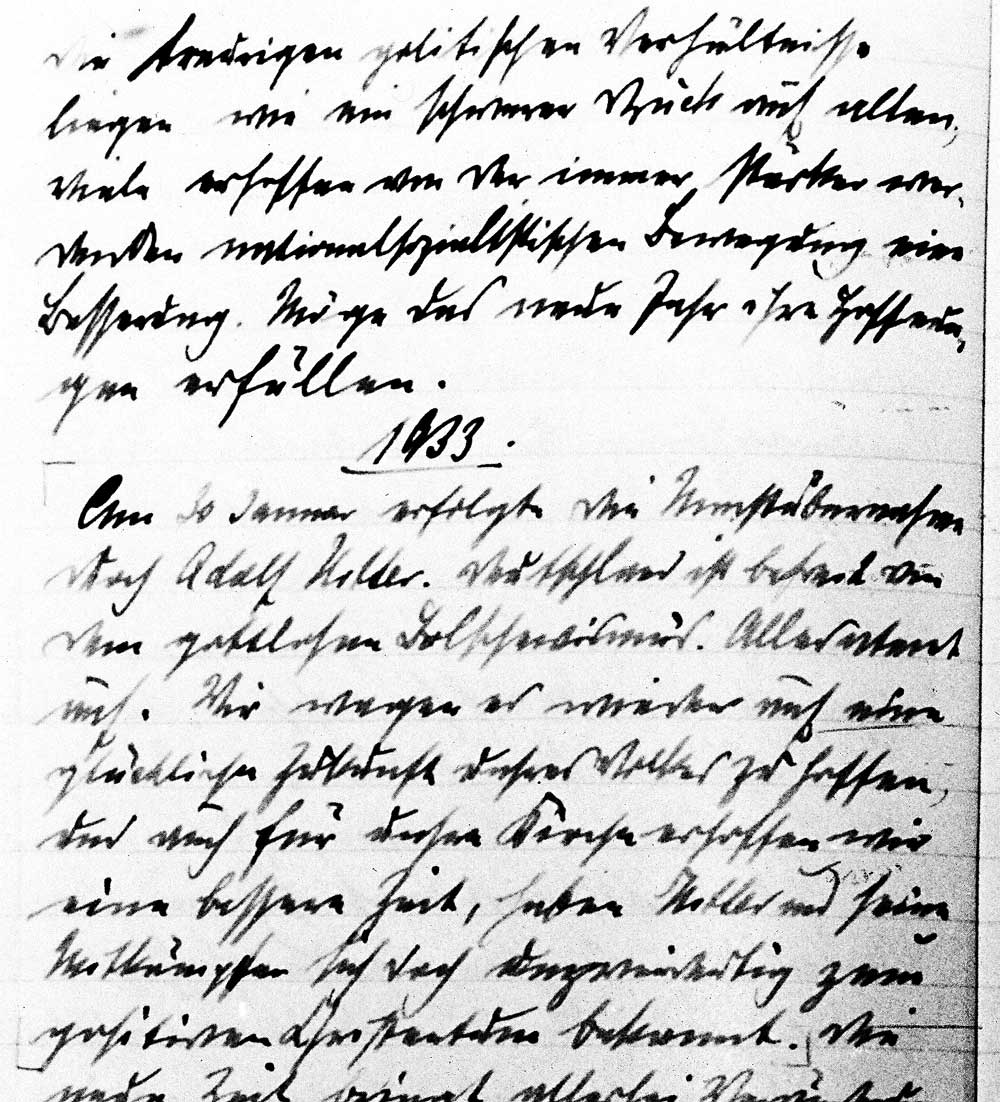 Die traurigen politischen Verhältnisse
liegen wie ein schwerer Druck auf allen,
viele erhoffen von der immer stärker wer-
denden nationalsozialistischen Bewegung eine
Besserung. Möge das neue Jahr ihre Hoffnun-
gen erfüllen.
1933.
Am 30 Januar erfolgte die Machtübernahme
durch Adolf Hitler. Deutschland ist befreit von
dem gottlosen Bolschewismus. Alles atmet
auf. Wir wagen es wieder auf eine
glückliche Zukunft unsres Volkes zu hoffen,
und auch für unsre Kirche erhoffen wir
eine bessere Zeit, haben Hitler und seine
Mitkämpfer sich doch unzweideutig zum
positiven Christentum bekannt. Die
neue Zeit bringt allerlei